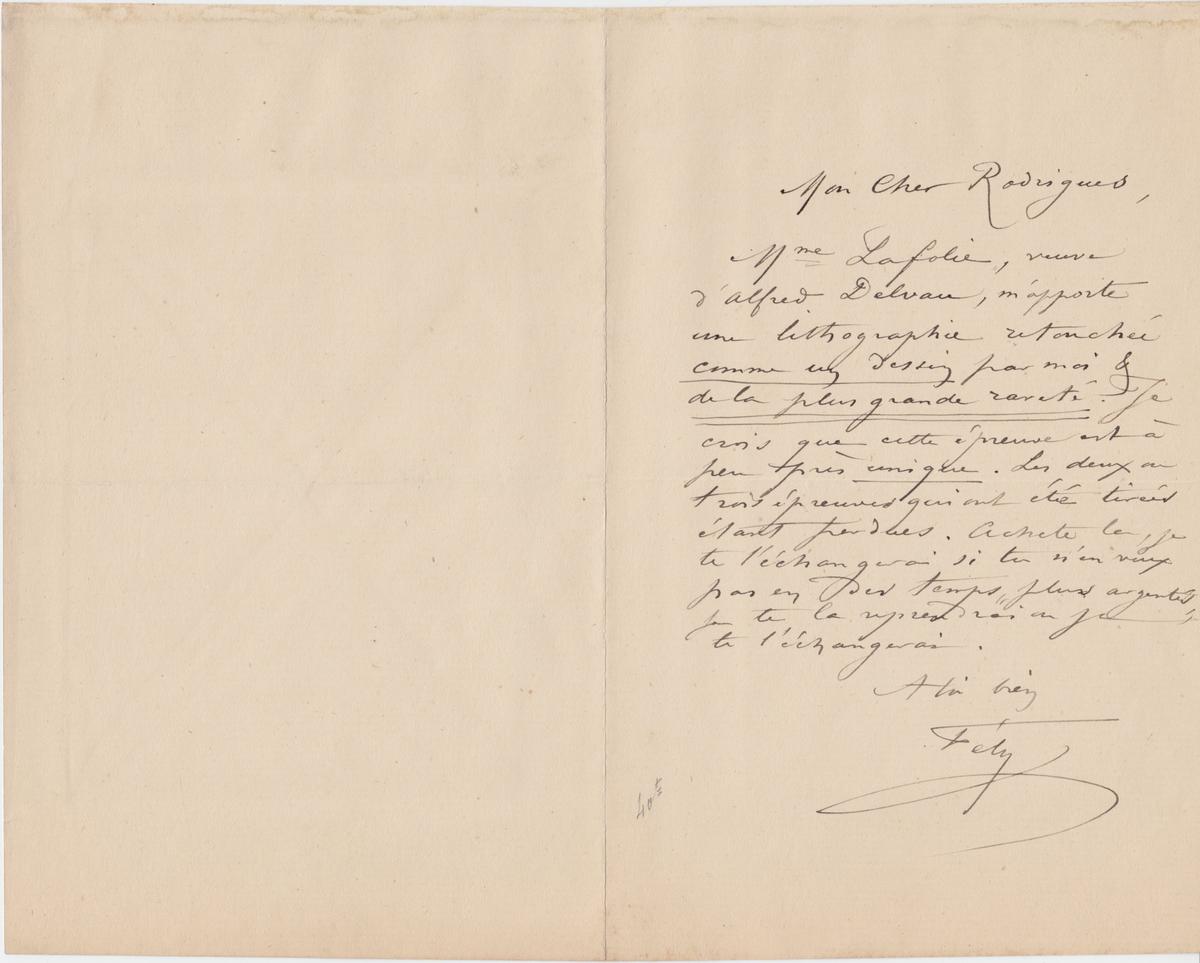 Mon Cher Rodrigues,
Mme Lafolie, veuve
d'Alfred Delvau, m'apporte
une lithographie retouchée
comme un dessin par moi &
de la plus grande rareté. Je
crois que cette épreuve est à
peu près unique. Les deux ou
trois épreuves qui ont été tirées
étant perdues. Achete la, je
te l'échangerai si tu n'en veux
pas en des temps plus argentés,
je te la reprendrai ou je
te l'échangerai.
A toi bien
Fély